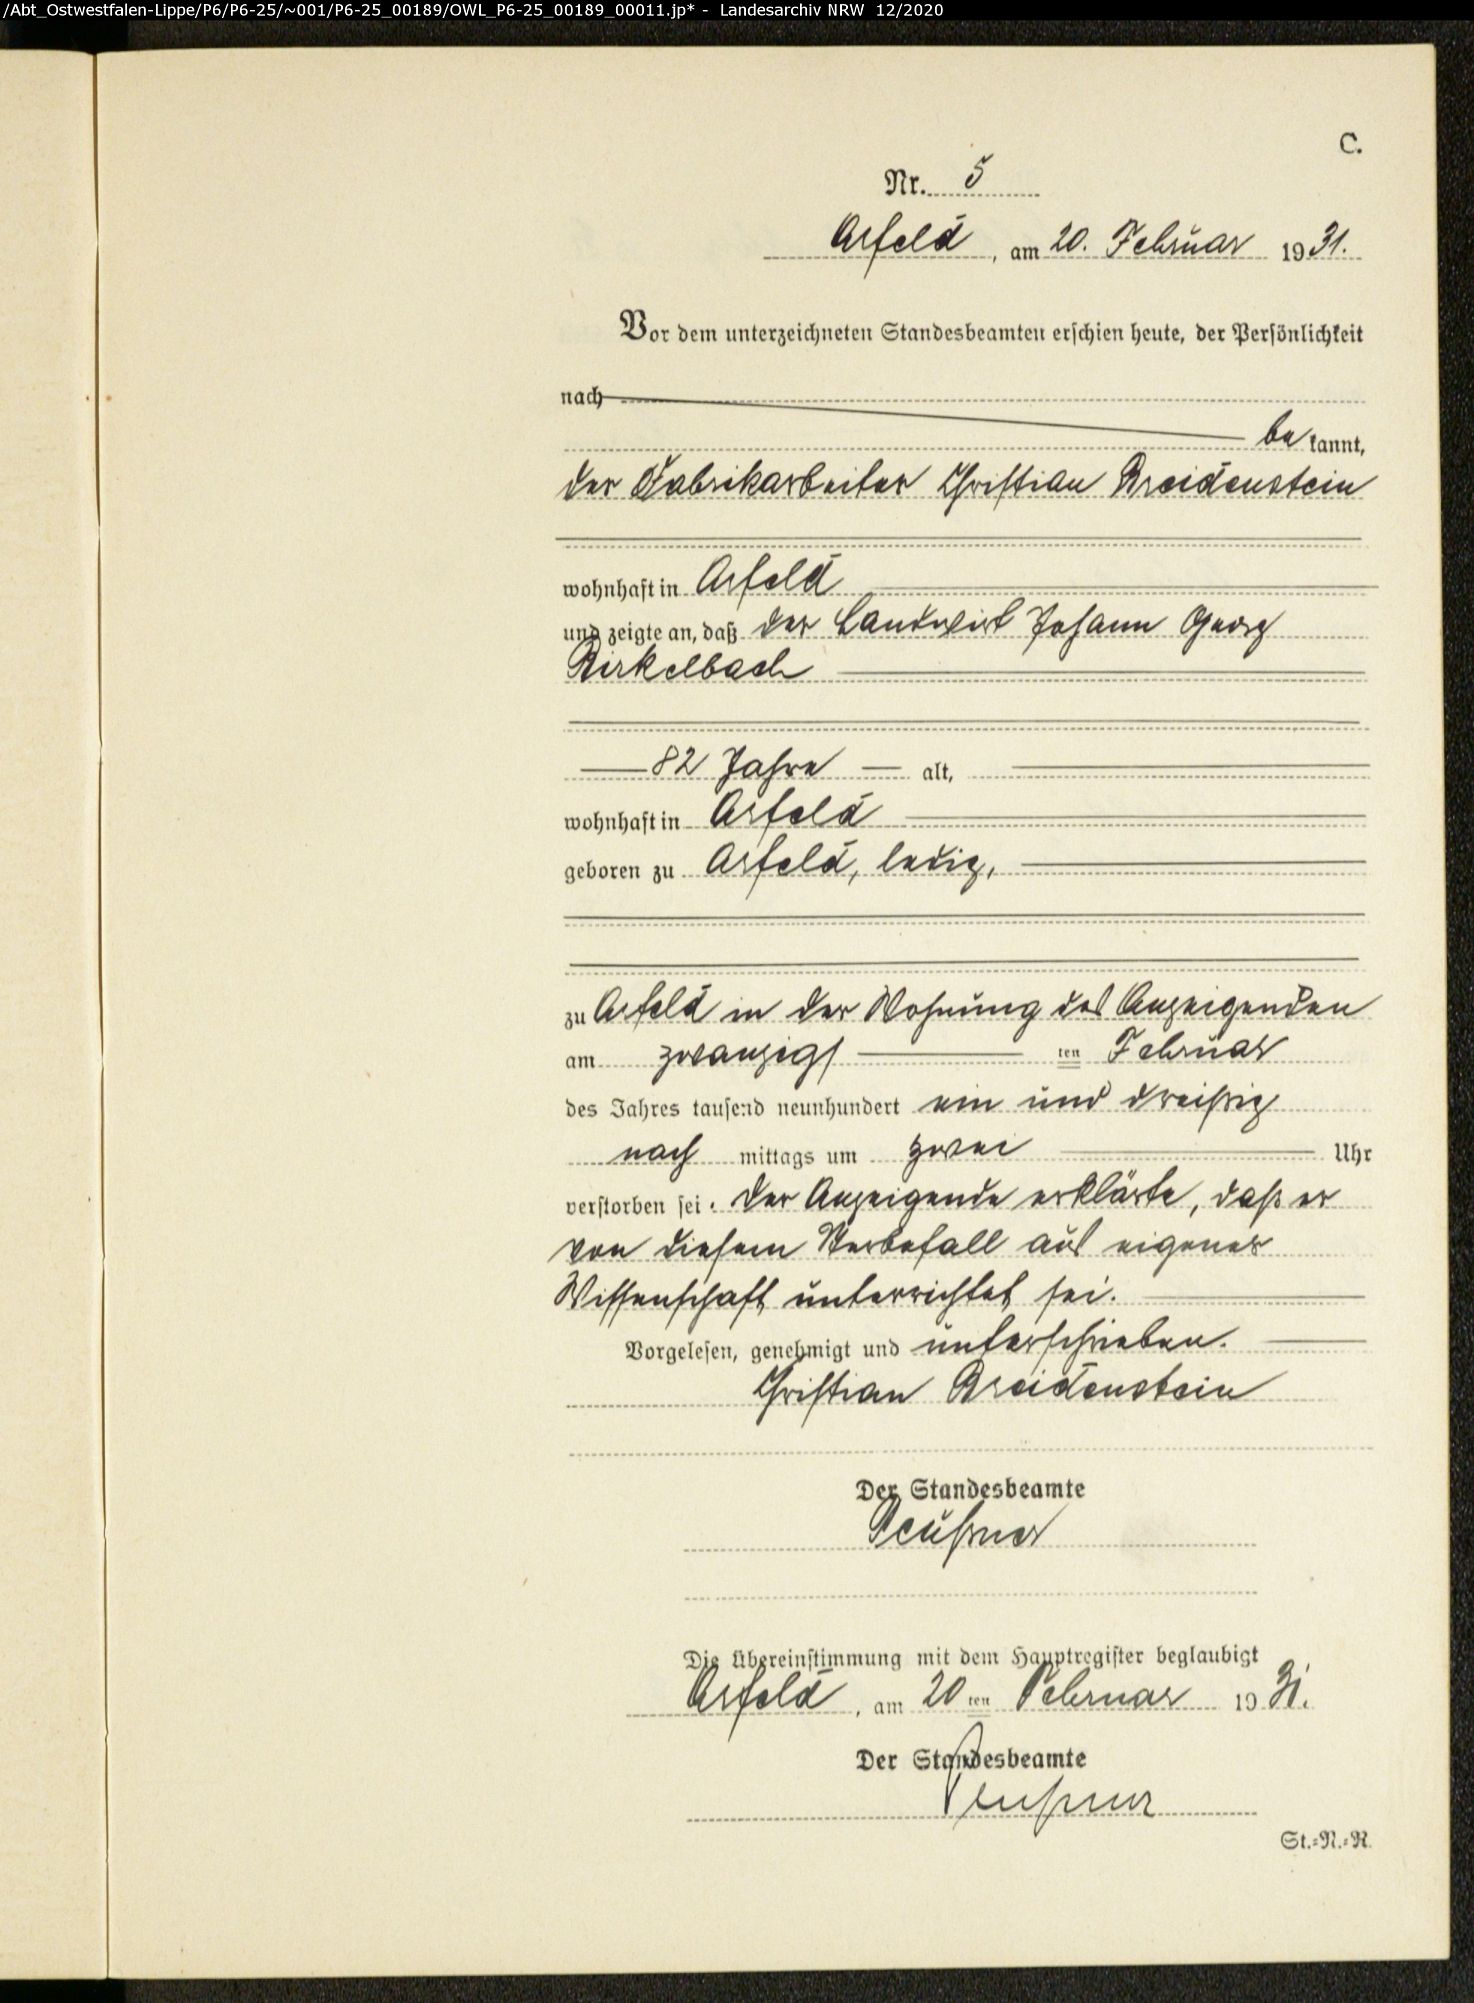 /Abt_Ostwestfalen-Lippe/P6/P6-25/~001/P6-25_00189/OWL_P6-25_00189_00011.jp* - Landesarchiv NRW 12/2020
C.
Nr. 5
Arfeld, am 20. Februar 1931.
Vor dem unterzeichneten Standesbeamten erschien heute, der Persönlichkeit
nach
bekannt,
der Fabrikarbeiter Christian Breidenstein
wohnhaft in Arfeld
und zeigte an, daß der Landwirt Johann Georg
Birkelbach
82 Jahre alt,
wohnhaft in Arfeld
geboren zu Arfeld, ledig,
zu Arfeld in der Wohnung des Anzeigenden
am zwanzigsten Februar
des Jahres tausend neunhundert ein und dreißig
nach mittags um zwei Uhr
verstorben sei. Der Anzeigende erklärte, daß er
von diesem Sterbefall aus eigener
Wissenschaft unterrichtet sei.
Vorgelesen, genehmigt und unterschrieben.
Christian Breidenstein
Der Standesbeamte
Die Übereinstimmung mit dem Hauptregister beglaubigt
Arfeld, am 20ten Februar 1931.
Der Standesbeamte
St.=N.=R.